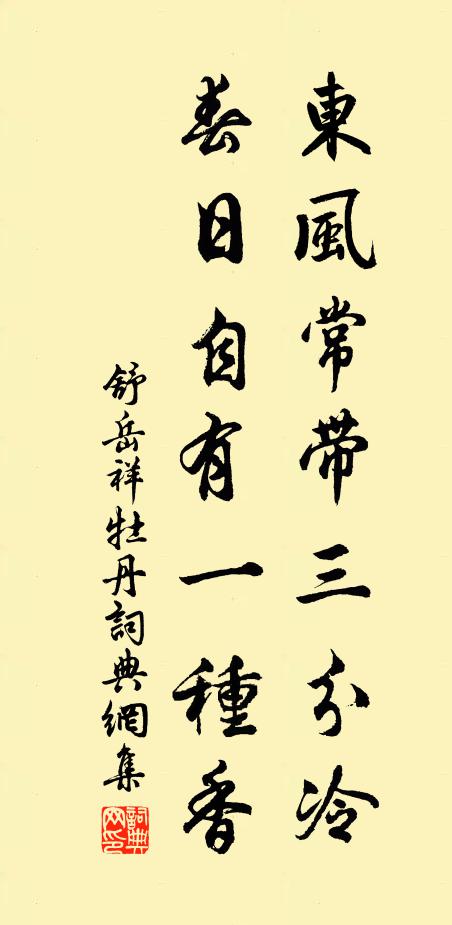 東風常帶三分冷
春日自有一種香
舒岳祥牡丹詞典網集
詞典網印